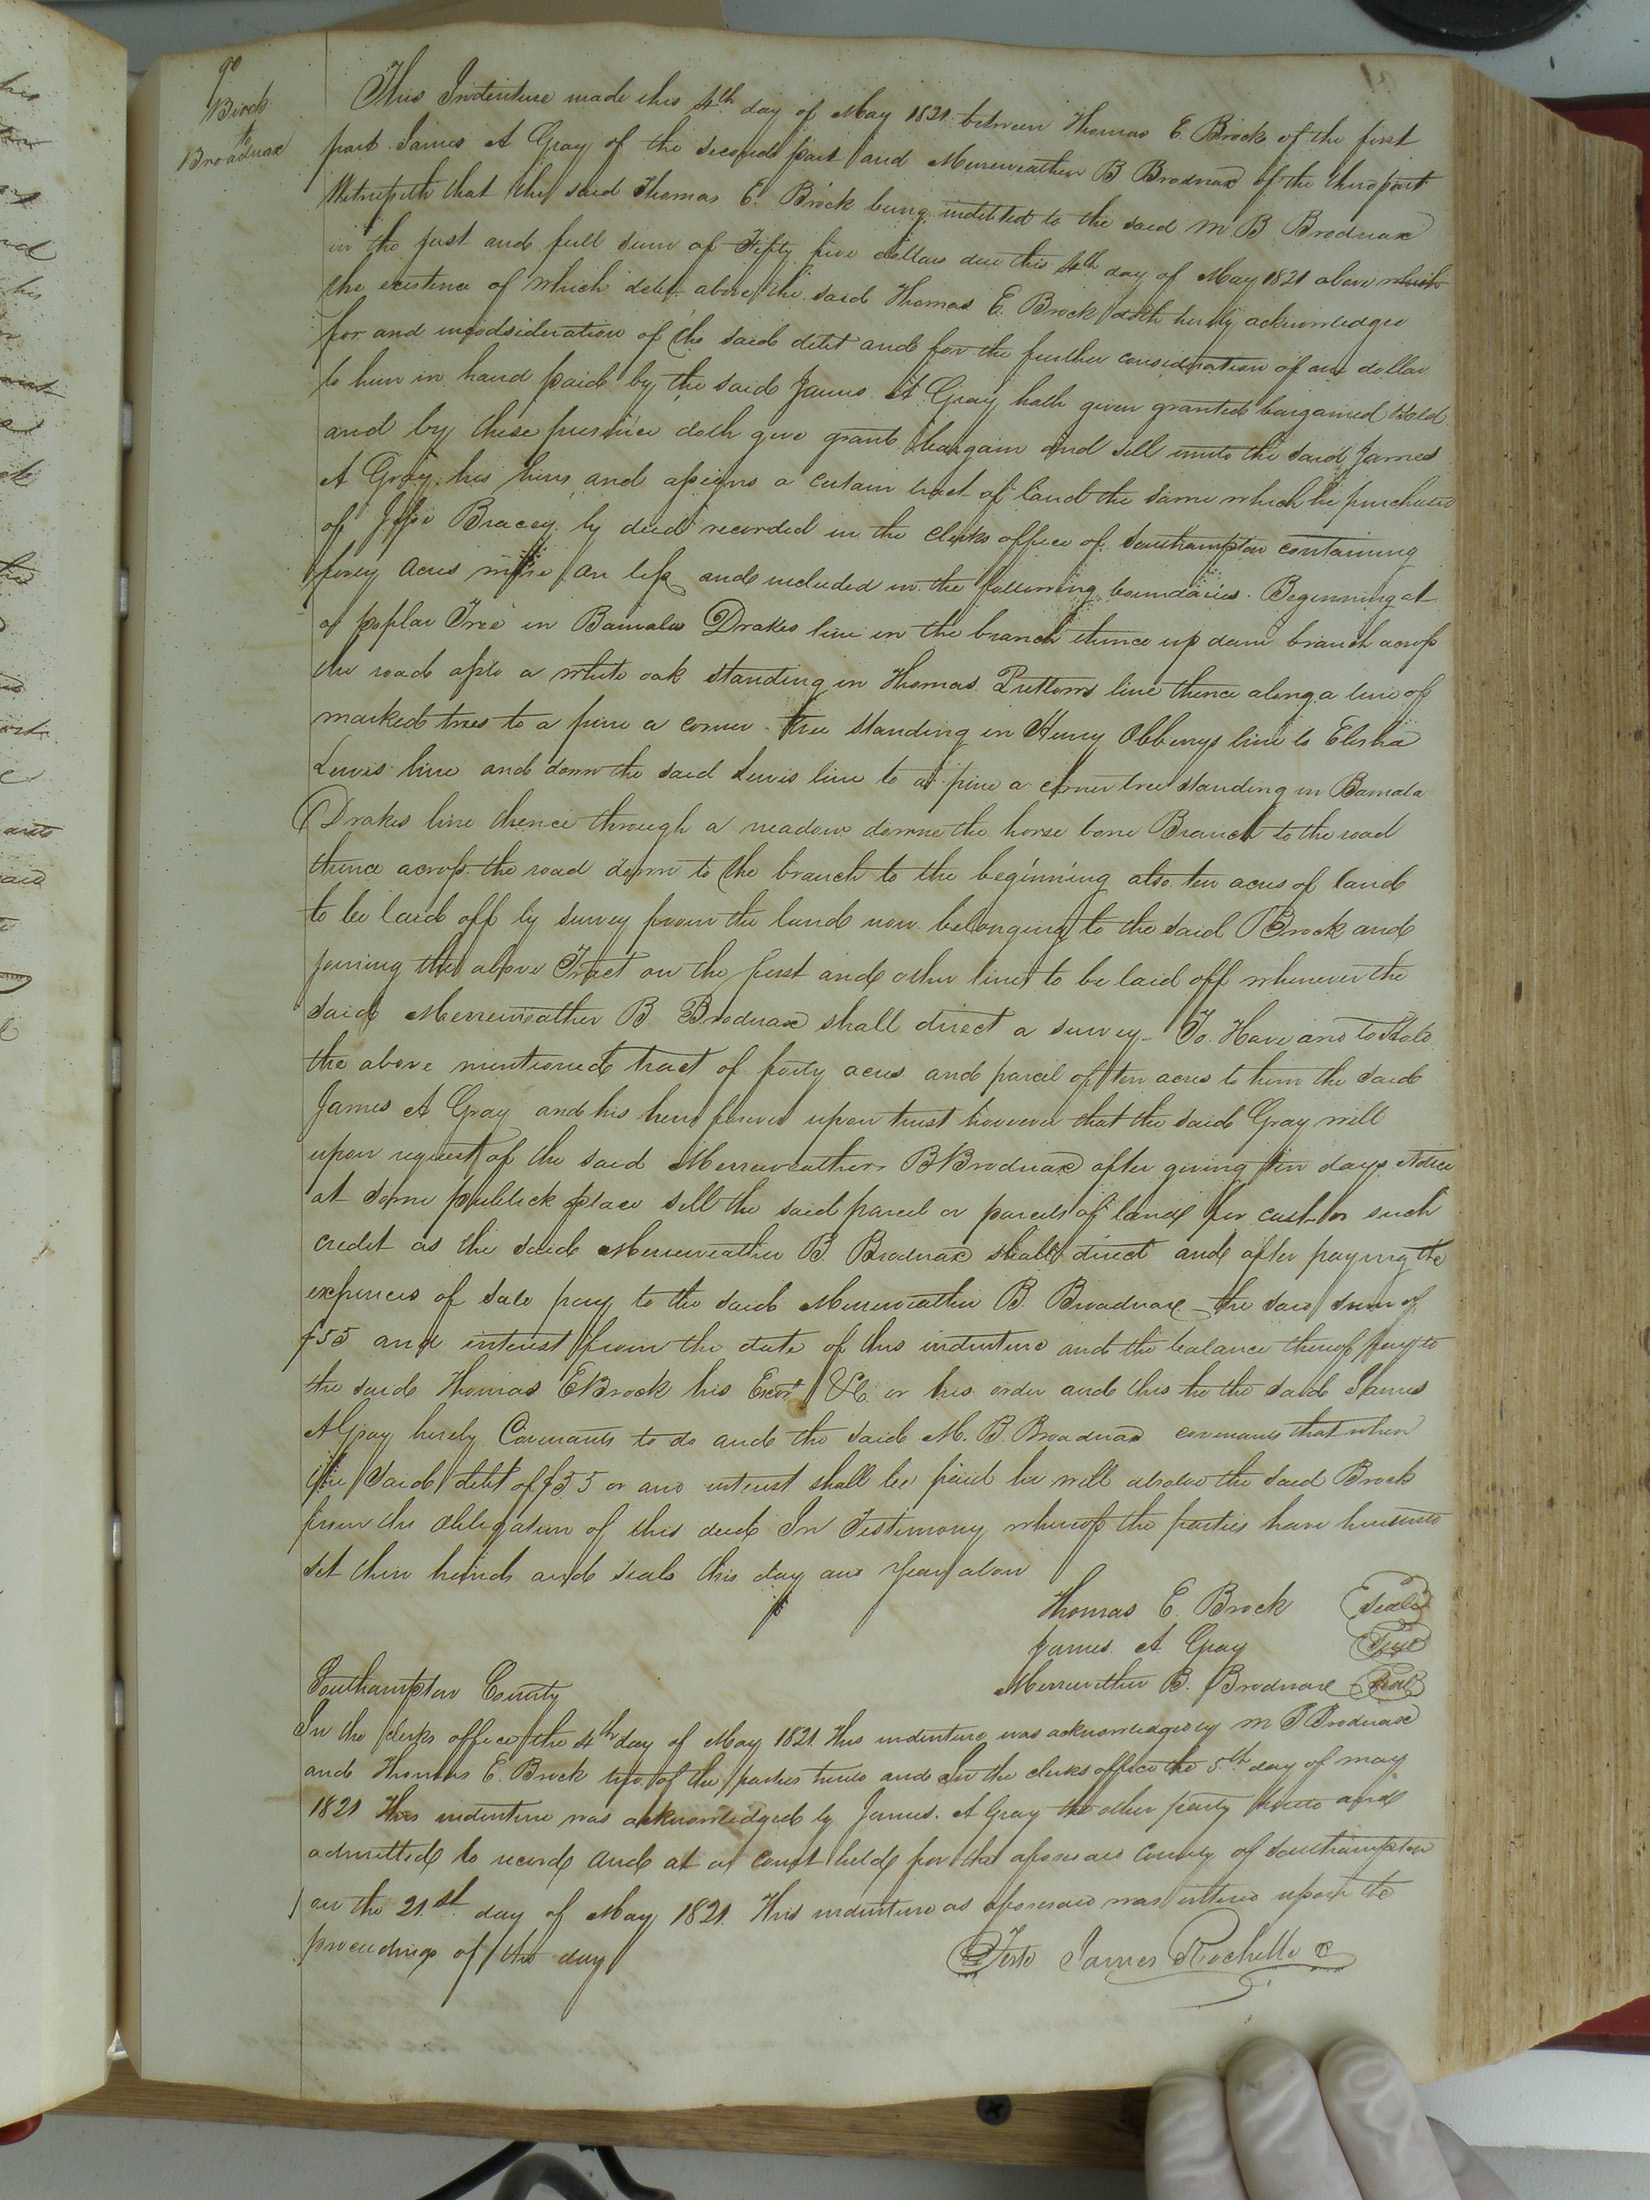 90
Brock
to
Broadnax
This Indenture made this 4th day of May 1821 between Thomas E. Brock of the first
part James A Gray of the second part and Merewether B Brodnax of the third part
Witnesseth that the said Thomas E. Brock being indebted to the said M B Brodnax
in the just and full sum of Fifty five dollars due this 4th day of May 1821 above which
the existence of which debt above the said Thomas E. Brock doth hereby acknowledge
for and inconsideration of the said debt and for the further consideration of one dollar
to him in hand paid by the said James A Gray hath given granted bargained & sold
and by these presence doth give grant bargain and sell unto the said James
A Gray his heirs and assigns a certain tract of land the same which he purchased
of Jesse Bracey by deed recorded in the Clerks office of Southampton containing
forty acres more or less and included in the following boundaries. Beginning at
a poplar Tree in Drakes line in the branch thence up said branch across
the road to a white oak standing in Thomas line thence along a line of
marked trees to a pine a corner tree standing in Henry line to Elisha
Lewis line and down the said Lewis line to a pine a corner tree standing in
Drakes line thence through a meadow downe the horse bone Branch to the road
thence across the road down to the branch to the beginning also ten acres of land
to be laid off by survey from the land now belonging to the said Brock and
joining the above Tract on the first and other line to be laid off whenever the
said Merrewether B Brodnax shall direct a survey - To Have and to Hold
the above mentioned tract of forty acres and parcel of ten acres to him the said
James A Gray and his heirs forever upon trust however that the said Gray will
upon request of the said Merrewether B Brodnax after giving ten days Notice
at some publick place sell the said parcel or parcels of land for cash or such
credit as the said Merrewether B. Brodnax shall direct and after paying the
expences of sale pay to the said Merrewether B. Broadnax the said sum of
$55 and interest from the date of this indenture and the balance thereof pay to
the said Thomas E Brock his Exors &c or his order and this he the said James
A Gray hereby Covenants to do and the said M. B. Broadnax covenants that when
the said debt of $55 or and interest shall be paid he will absolve the said Brock
from the obligation of this deed In Testimony whereof the parties have hereunto
set their hands and seals this day and year above
Thomas E. Brock Seal
James A. Gray Seal
Merrewether B. Brodnax Seal
Southampton County
In the clerks office the 4th day of May 1821 This indenture was acknowledged by M B Brodnax
and Thomas E. Brock two of the parties hereto and In the clerks office the 5th day of May
1821 This indenture was acknowledged by James A Gray the other party hereto and
admitted to record and at a Court held for the aforesaid County of Southampton
on the 21st day of May 1821. This indenture as aforesaid was entered upon the
proceedings of the day
Teste James Rochelle c